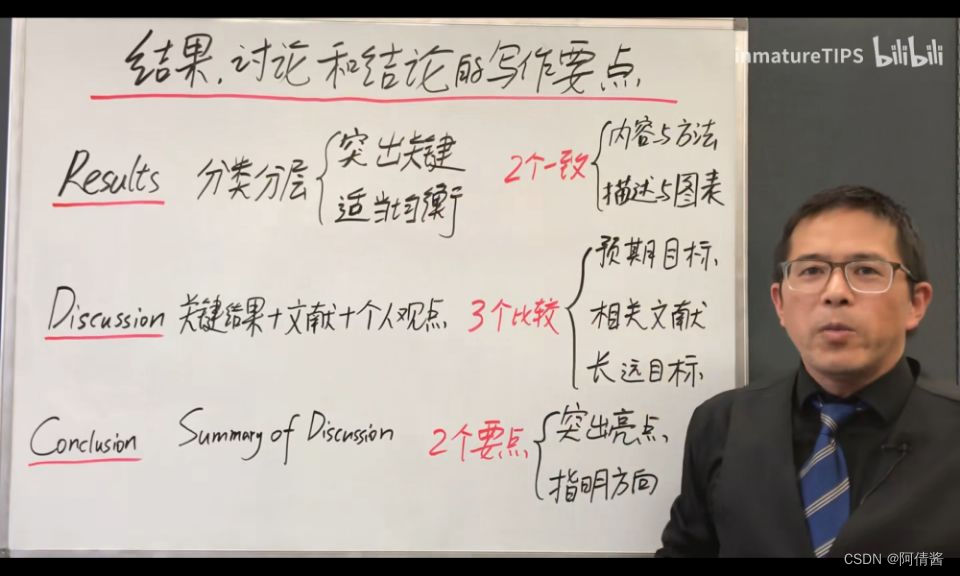 结果、讨论和结论的写作要点
inmatureTIPS bilibili
Results 分类分层 突出关键 适当均衡 2个一致 内容与方法 描述与图表
Discussion 关键结果+文献+个人观点 3个比较 预期目标 相关文献 长远目标
Conclusion Summary of Discussion 2个要点 突出亮点 指明方向
CSDN @阿倩酱